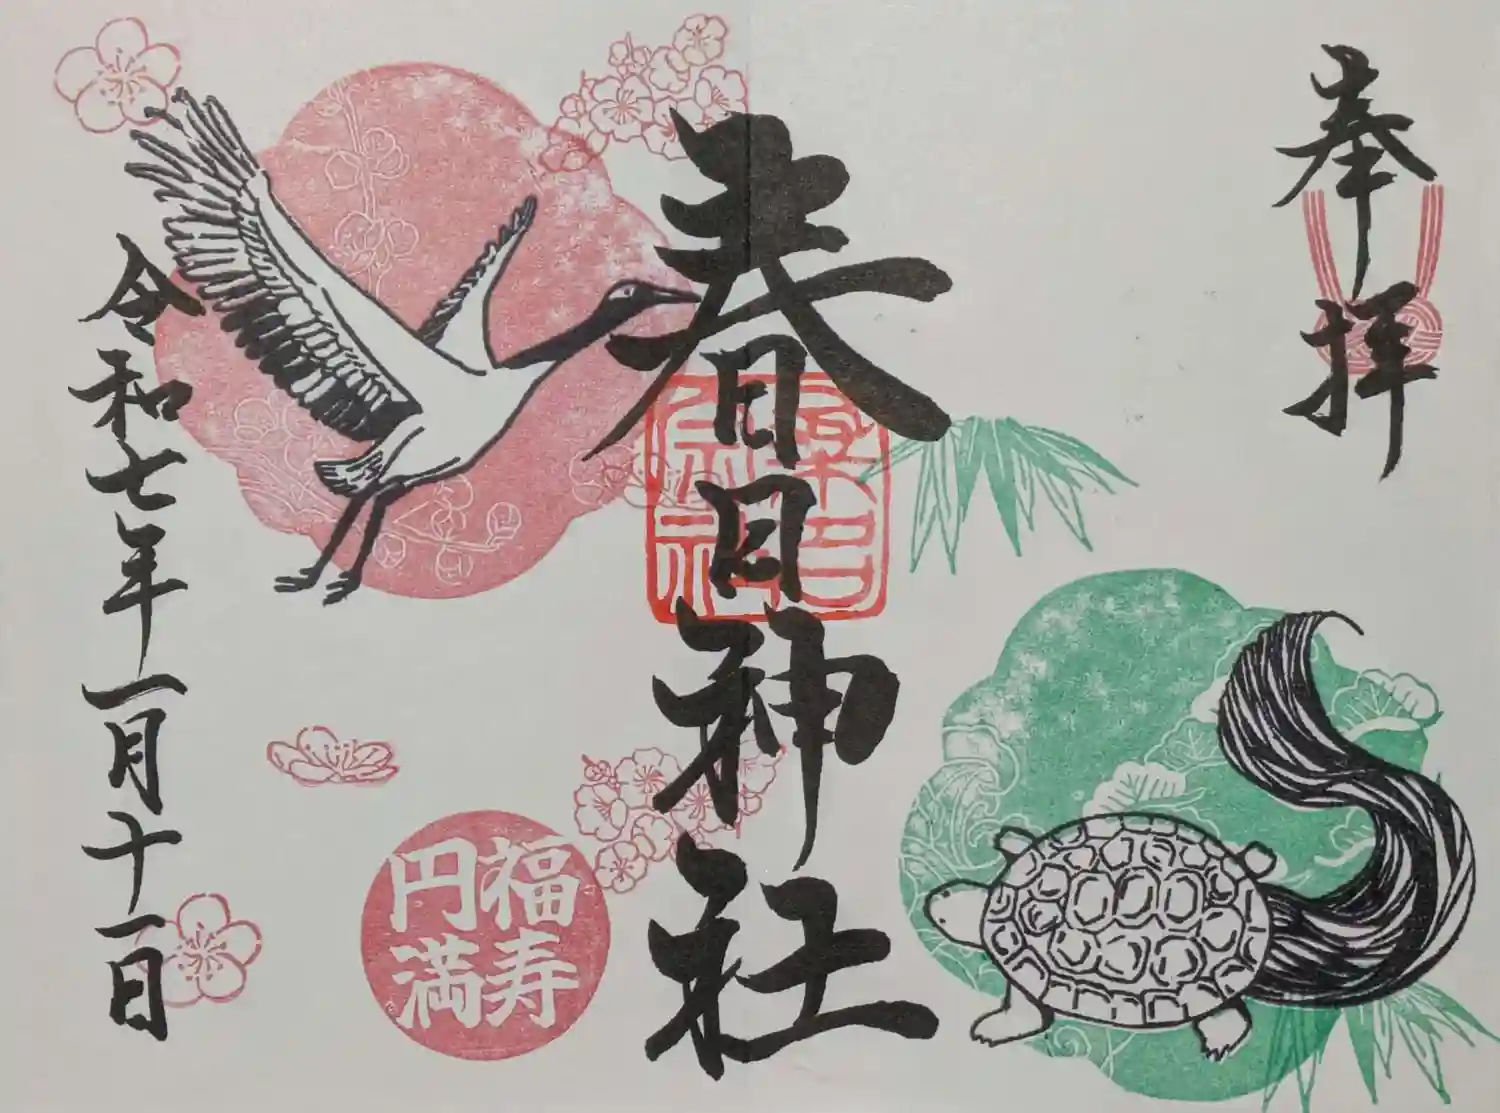 奉拝
春日神社
桑名
宗社
福寿
円満
令和七年一月十一日